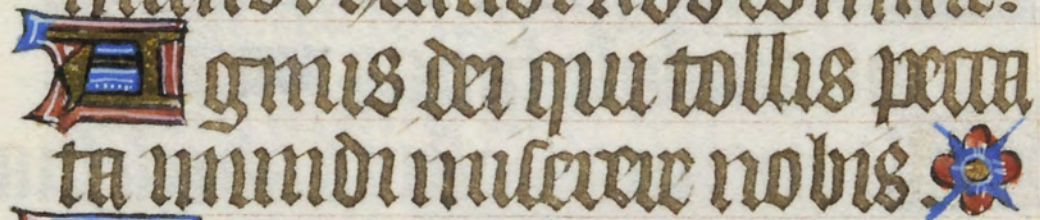 Agnus dei qui tollis pecca
ta mundi miserere nobis .